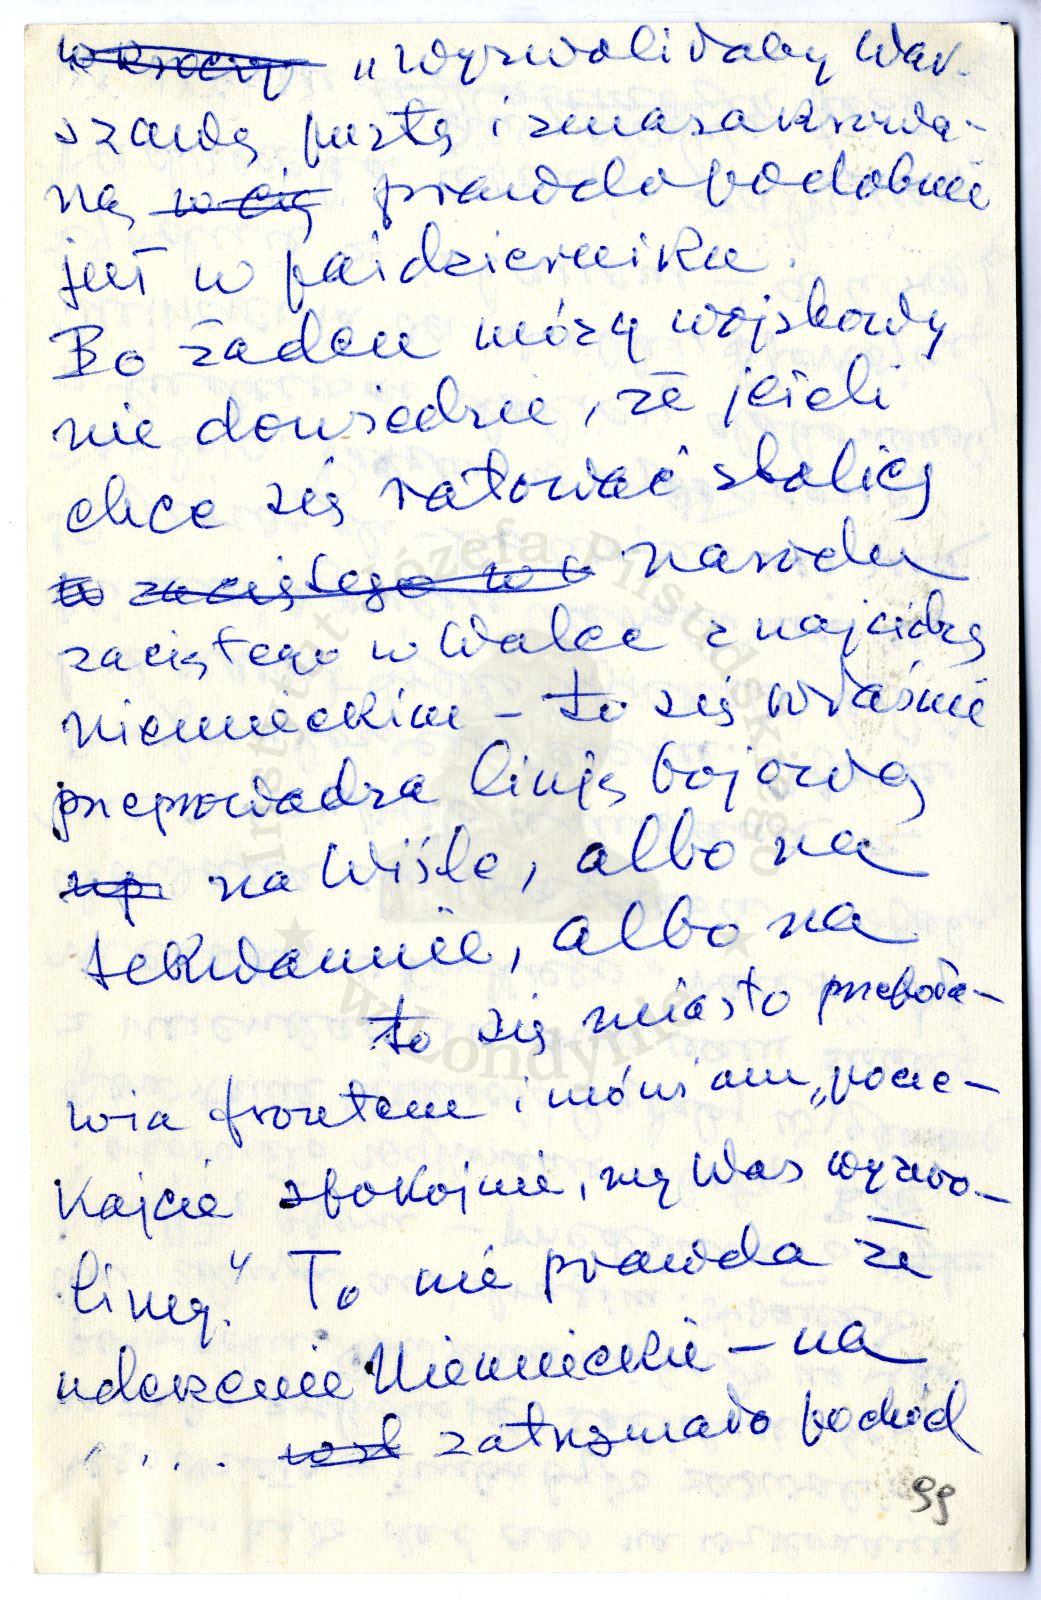 w rzeczy „wyzwoliłaby War-
szawę pustą i zmasakrowa-
ną w cią prawdopodobnie
jest w październiku.
Bo żaden mózg wojskowy
nie dowiedzie, że jeżeli
chce się ratować stolicę
to zaciętego w narodu
zaciętego w walce z najeźdźcą
niemieckim – to się właśnie
przeprowadza linję bojową
np na Wiśle, albo na
Sekwannie, albo na
to się miasto pozosta-
wia frontem i mówi am „pocze-
kajcie spokojnie, my Was wyzwo-
limy." To nie prawda że
uderzenie Niemieckie – na
. . . . zatrzymało pochód
99
Instytut Józefa Piłsudskiego
w Londynie